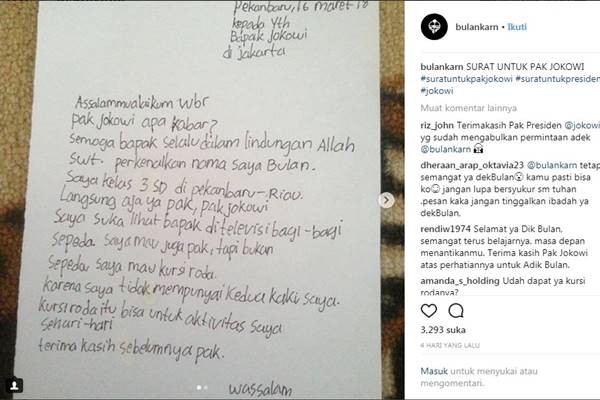 Pekanbaru, 16 maret 18
kepada Yth
Bapak jokowi
di jakarta
Assalammualaikum wbr
pak jokowi apa kabar?
semoga bapak selalu dalam lindungan Allah
swt. perkenalkan nama saya Bulan.
Saya kelas 3 SD di pekanbaru-Riau.
Langsung aja ya pak, pak jokowi
Saya suka lihat bapak di televisi bagi-bagi
sepeda. Saya mau juga pak, tapi bukan
sepeda saya mau kursi roda.
karena saya tidak mempunyai kedua kaki saya.
kursi roda itu bisa untuk aktivitas saya
sehari-hari
terima kasih sebelumnya pak.
wassalam
bulankarn • Ikuti
bulankarn SURAT UNTUK PAK JOKOWI
#suratuntukpakjokowi #suratuntukpresiden
#jokowi
Muat komentar lainnya
riz_john Terimakasih Pak Presiden @jokowi
yg sudah mengabulkan permintaan adek
@bulankarn
dheraan_arap_oktavia23 @bulankarn tetap
semangat ya dekBulan kamu pasti bisa
ko jangan lupa bersyukur sm tuhan
.pesan kaka jangan tinggalkan ibadah ya
dekBulan.
rendiw1974 Selamat ya Dik Bulan,
semangat terus belajarnya, masa depan
menantikanmu. Terima kasih Pak Jokowi
atas perhatiannya untuk Adik Bulan.
amanda_s_holding Udah dapat ya kursi
rodanya?
3,293 suka
4 HARI YANG LALU
Masuk untuk menyukai atau
mengomentari.